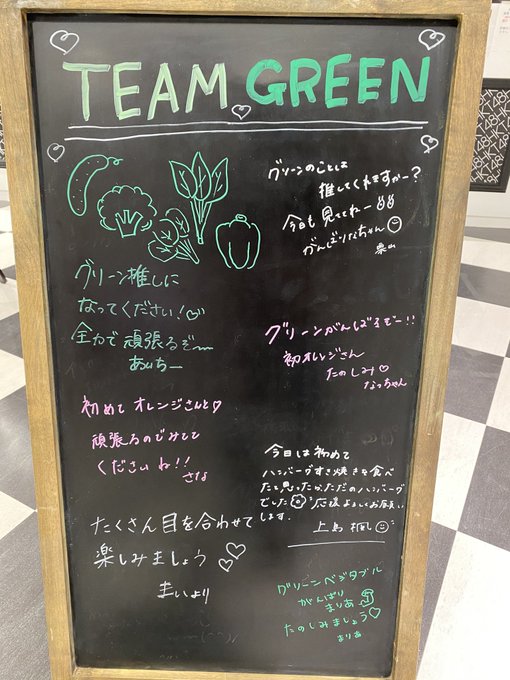 TEAM GREEN
グリーン推しに
なってください!
全力で頑張るぞー
あいちー
初めて オレンジさんと
頑張るのでみして
くださいね!!
さな
たくさん目を合わせて
楽しみましょう
まいより
グリーンのことは
推してくれますかー?
今日も見ててねー
がんばりなちゃん
栗山
グリーンがんばるぞー!!
初オレンジさん
たのしみ
なっちゃん
今日は初めて
ハンバーグすき焼きを食べ
たと思ったらただのハンバーグ
でした 応援よろしくお願い
します。
上島 楓
グリーンベジタブル
がんばり
まりあ
たのしみましょう
まりあ